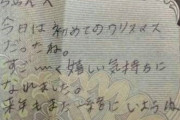 ちゃんへ
今日は初めてのクリスマス
だったね。
すご〜く嬉しい気持ちに
なれました。
来年もまた一緒にいようね